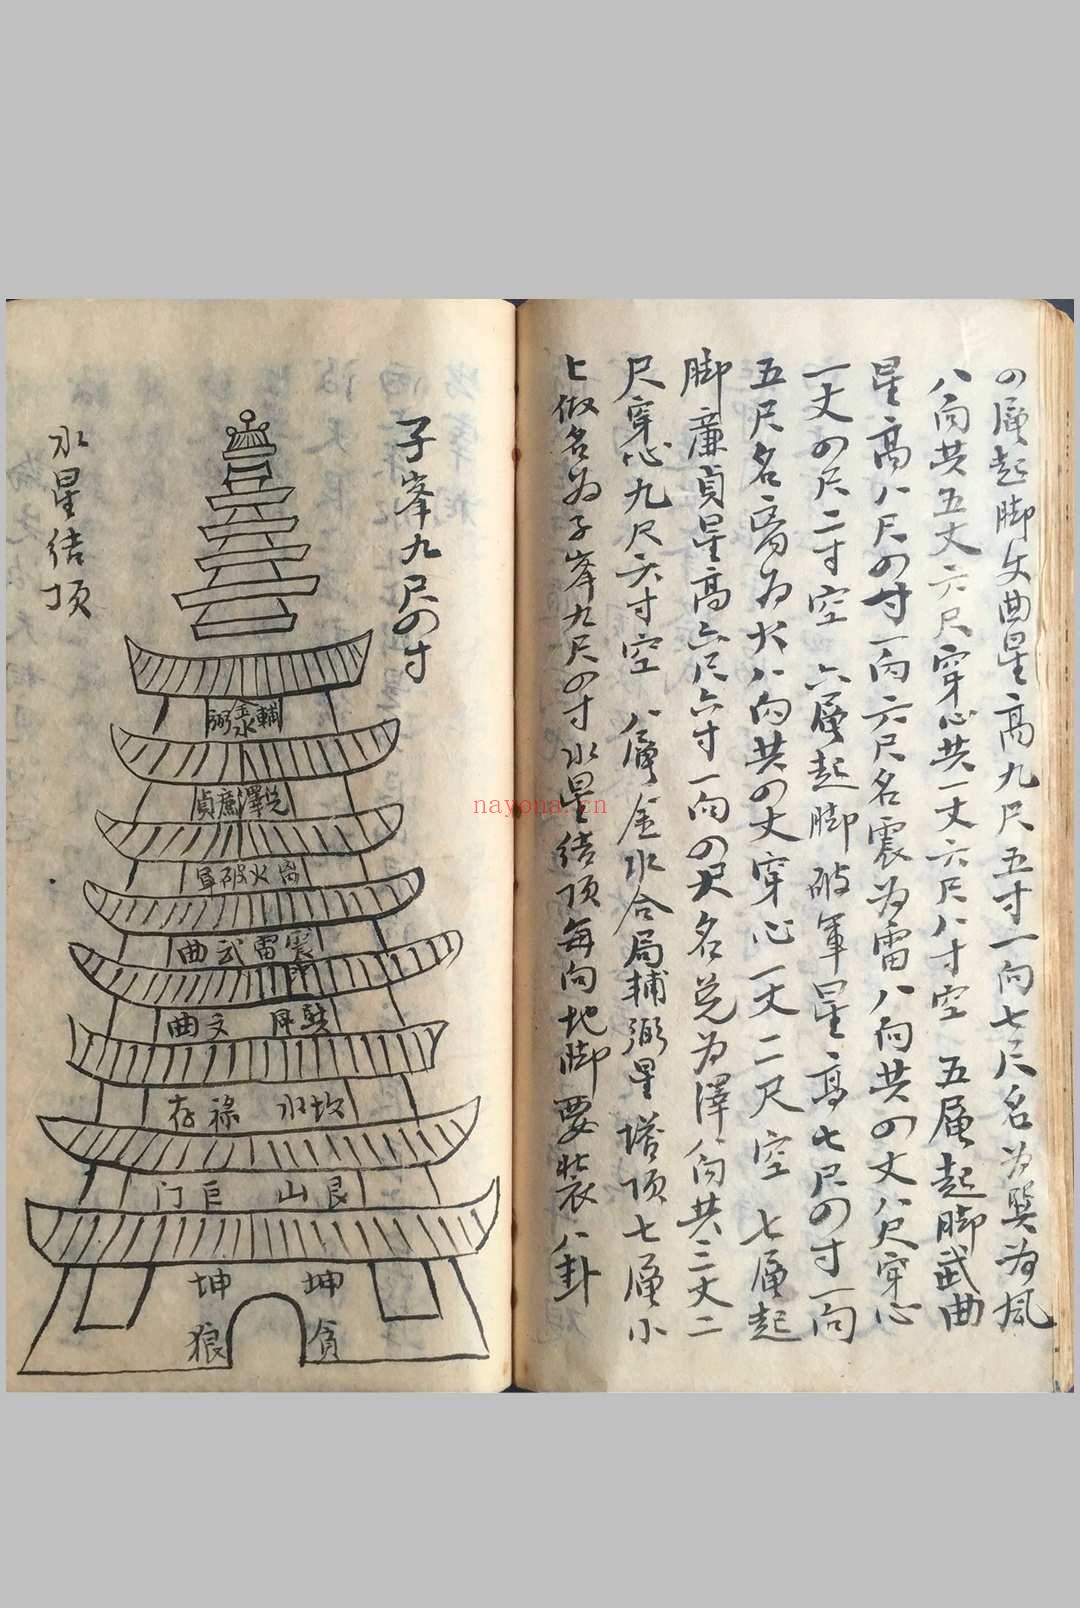 の層起脚文曲星高九尺五寸一向七尺名为巽为風
八向共五丈六尺穿心共一丈六尺八寸空 五層起脚武曲
星高八尺の寸一向六尺名震为雷八向共の丈八尺穿心
一丈の尺二寸空 六層起脚破軍星高七尺の寸一向
五尺名离为火八向共の丈穿心一丈二尺空 七層起
脚廉貞星高六尺六寸一向の尺名兑为澤八向共三丈二
尺穿心九尺六寸空 八層金水合局輔弼星塔顶七層小
上做名为子峯九尺の寸水星结顶每向地脚要装八卦
子峯九尺の寸
水星结顶
輔金水弼
兑澤廉貞
离火破軍
震雷武曲
巽 文曲
坎水 祿存
艮山 巨门
坤 坤
貪 狼
nayona.cn